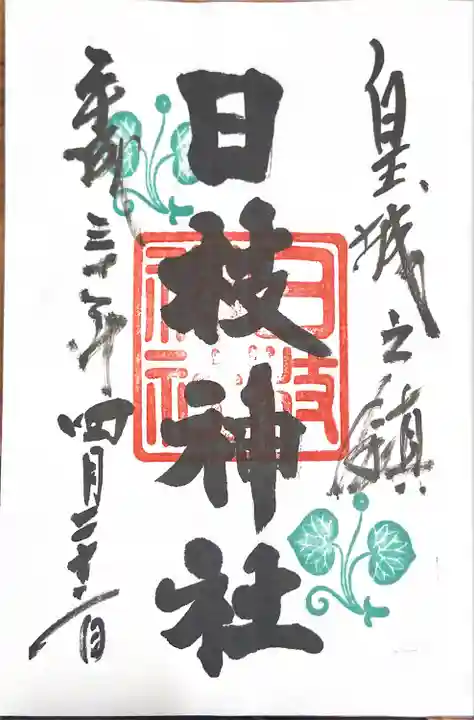 皇城之鎮
日枝神社
日枝神社
平成三十年四月二十一日